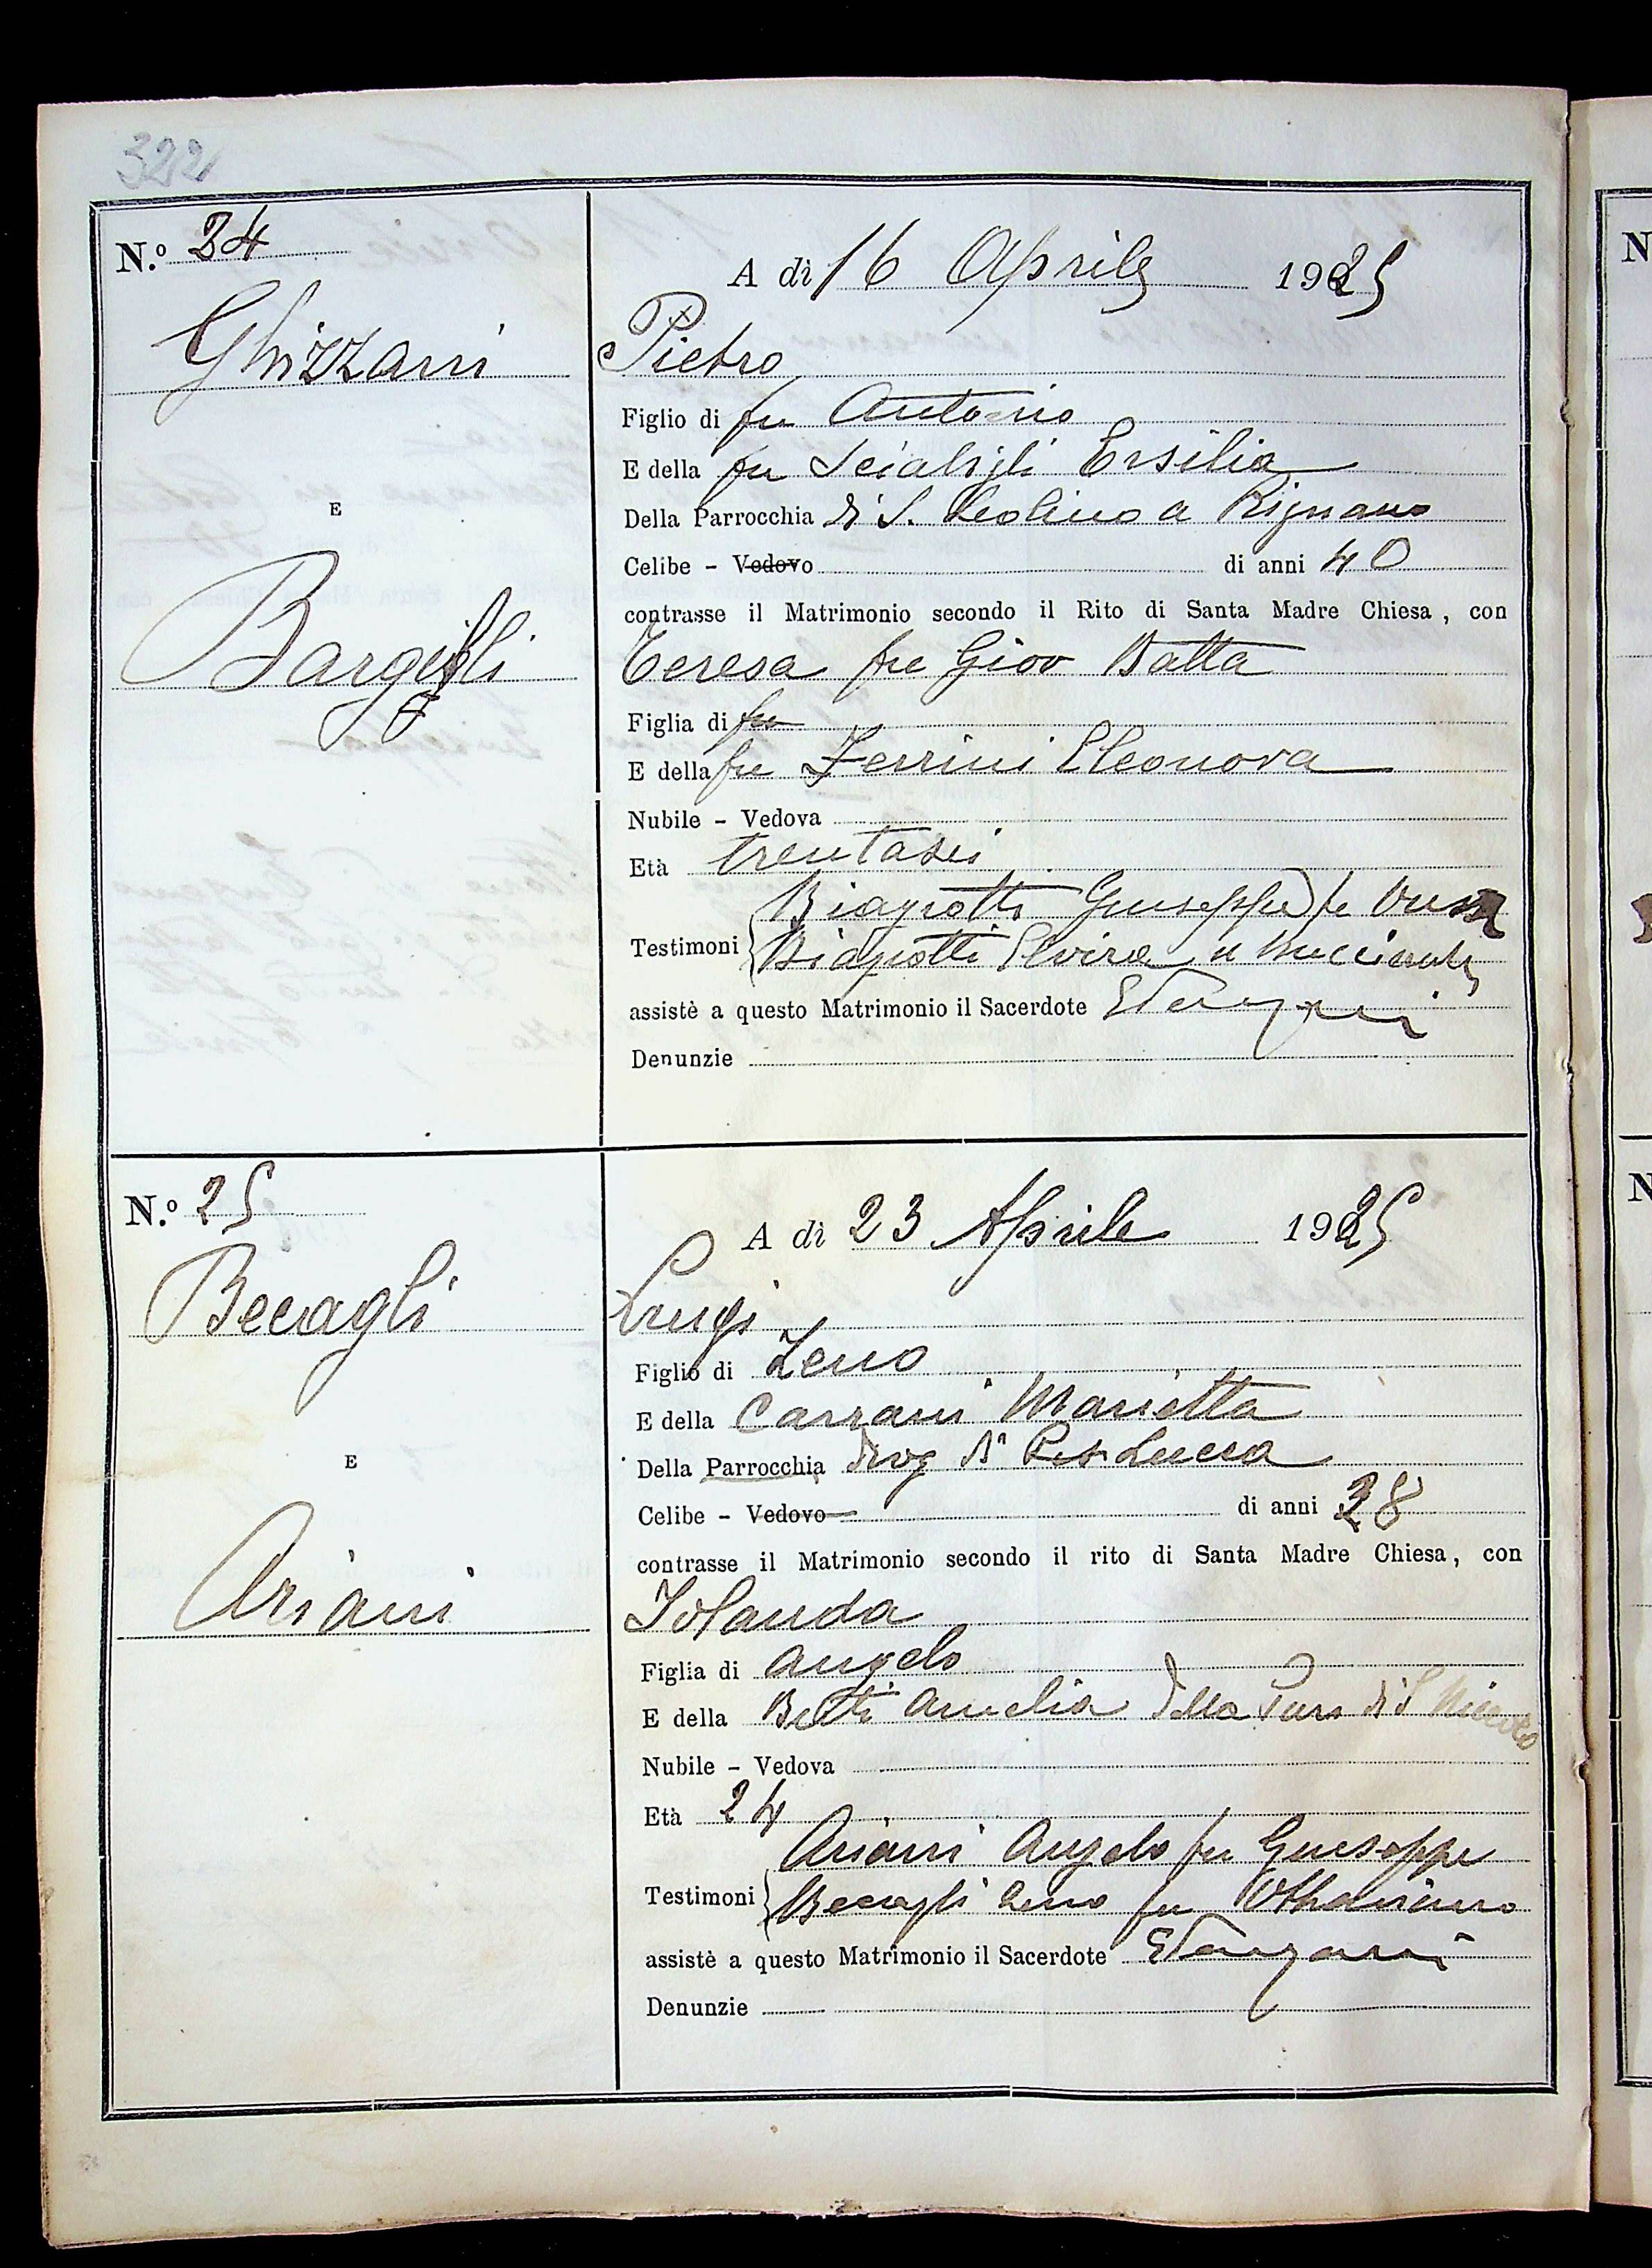 322
N.º 24
A dì 16 Aprile 1925
Ghizzani
Pietro
Figlio di fu Antonio
E della fu Scialigli Ersilia
E
Della Parrocchia di S. Leolino a Rignano
Celibe - Vedovo di anni 40
contrasse il Matrimonio secondo il Rito di Santa Madre Chiesa, con
Bargigli
Teresa fu Giov Batta
Figlia di fu
E della fu Zerrini Eleonora
Nubile - Vedova
Età trentasei
Biagiotti Giuseppe fu
Testimoni Biagiotti Elvira n
assistè a questo Matrimonio il Sacerdote
Denunzie
N.º 25
A dì 23 Aprile 1925
Becagli
Luigi
Figlio di Zeno
E della Carrani Marietta
E
Della Parrocchia Lucca
Celibe - Vedovo di anni 38
contrasse il Matrimonio secondo il rito di Santa Madre Chiesa, con
Ariani
Iolanda
Figlia di Angelo
E della Betti Amelia della di S Niccolo
Nubile - Vedova
Età 24
Ariani Angelo fu Giuseppe
Testimoni Becagli Zeno fu Ottaviano
assistè a questo Matrimonio il Sacerdote
Denunzie